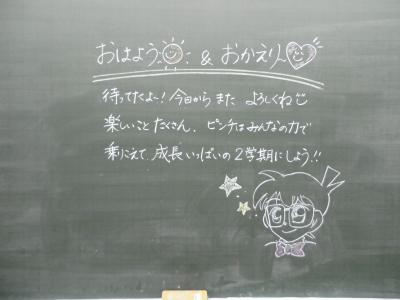 おはよう & おかえり
待ってたよ〜！今日から また よろしくね
楽しいこと たくさん、ピンチはみんなの力で
乗りこえて 成長いっぱいの 2学期にしよう!!